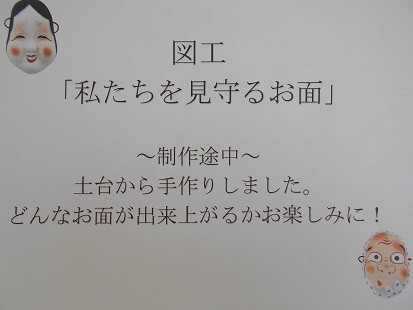 図工
「私たちを見守るお面」
～制作途中～
土台から手作りしました。
どんなお面が出来上がるかお楽しみに！